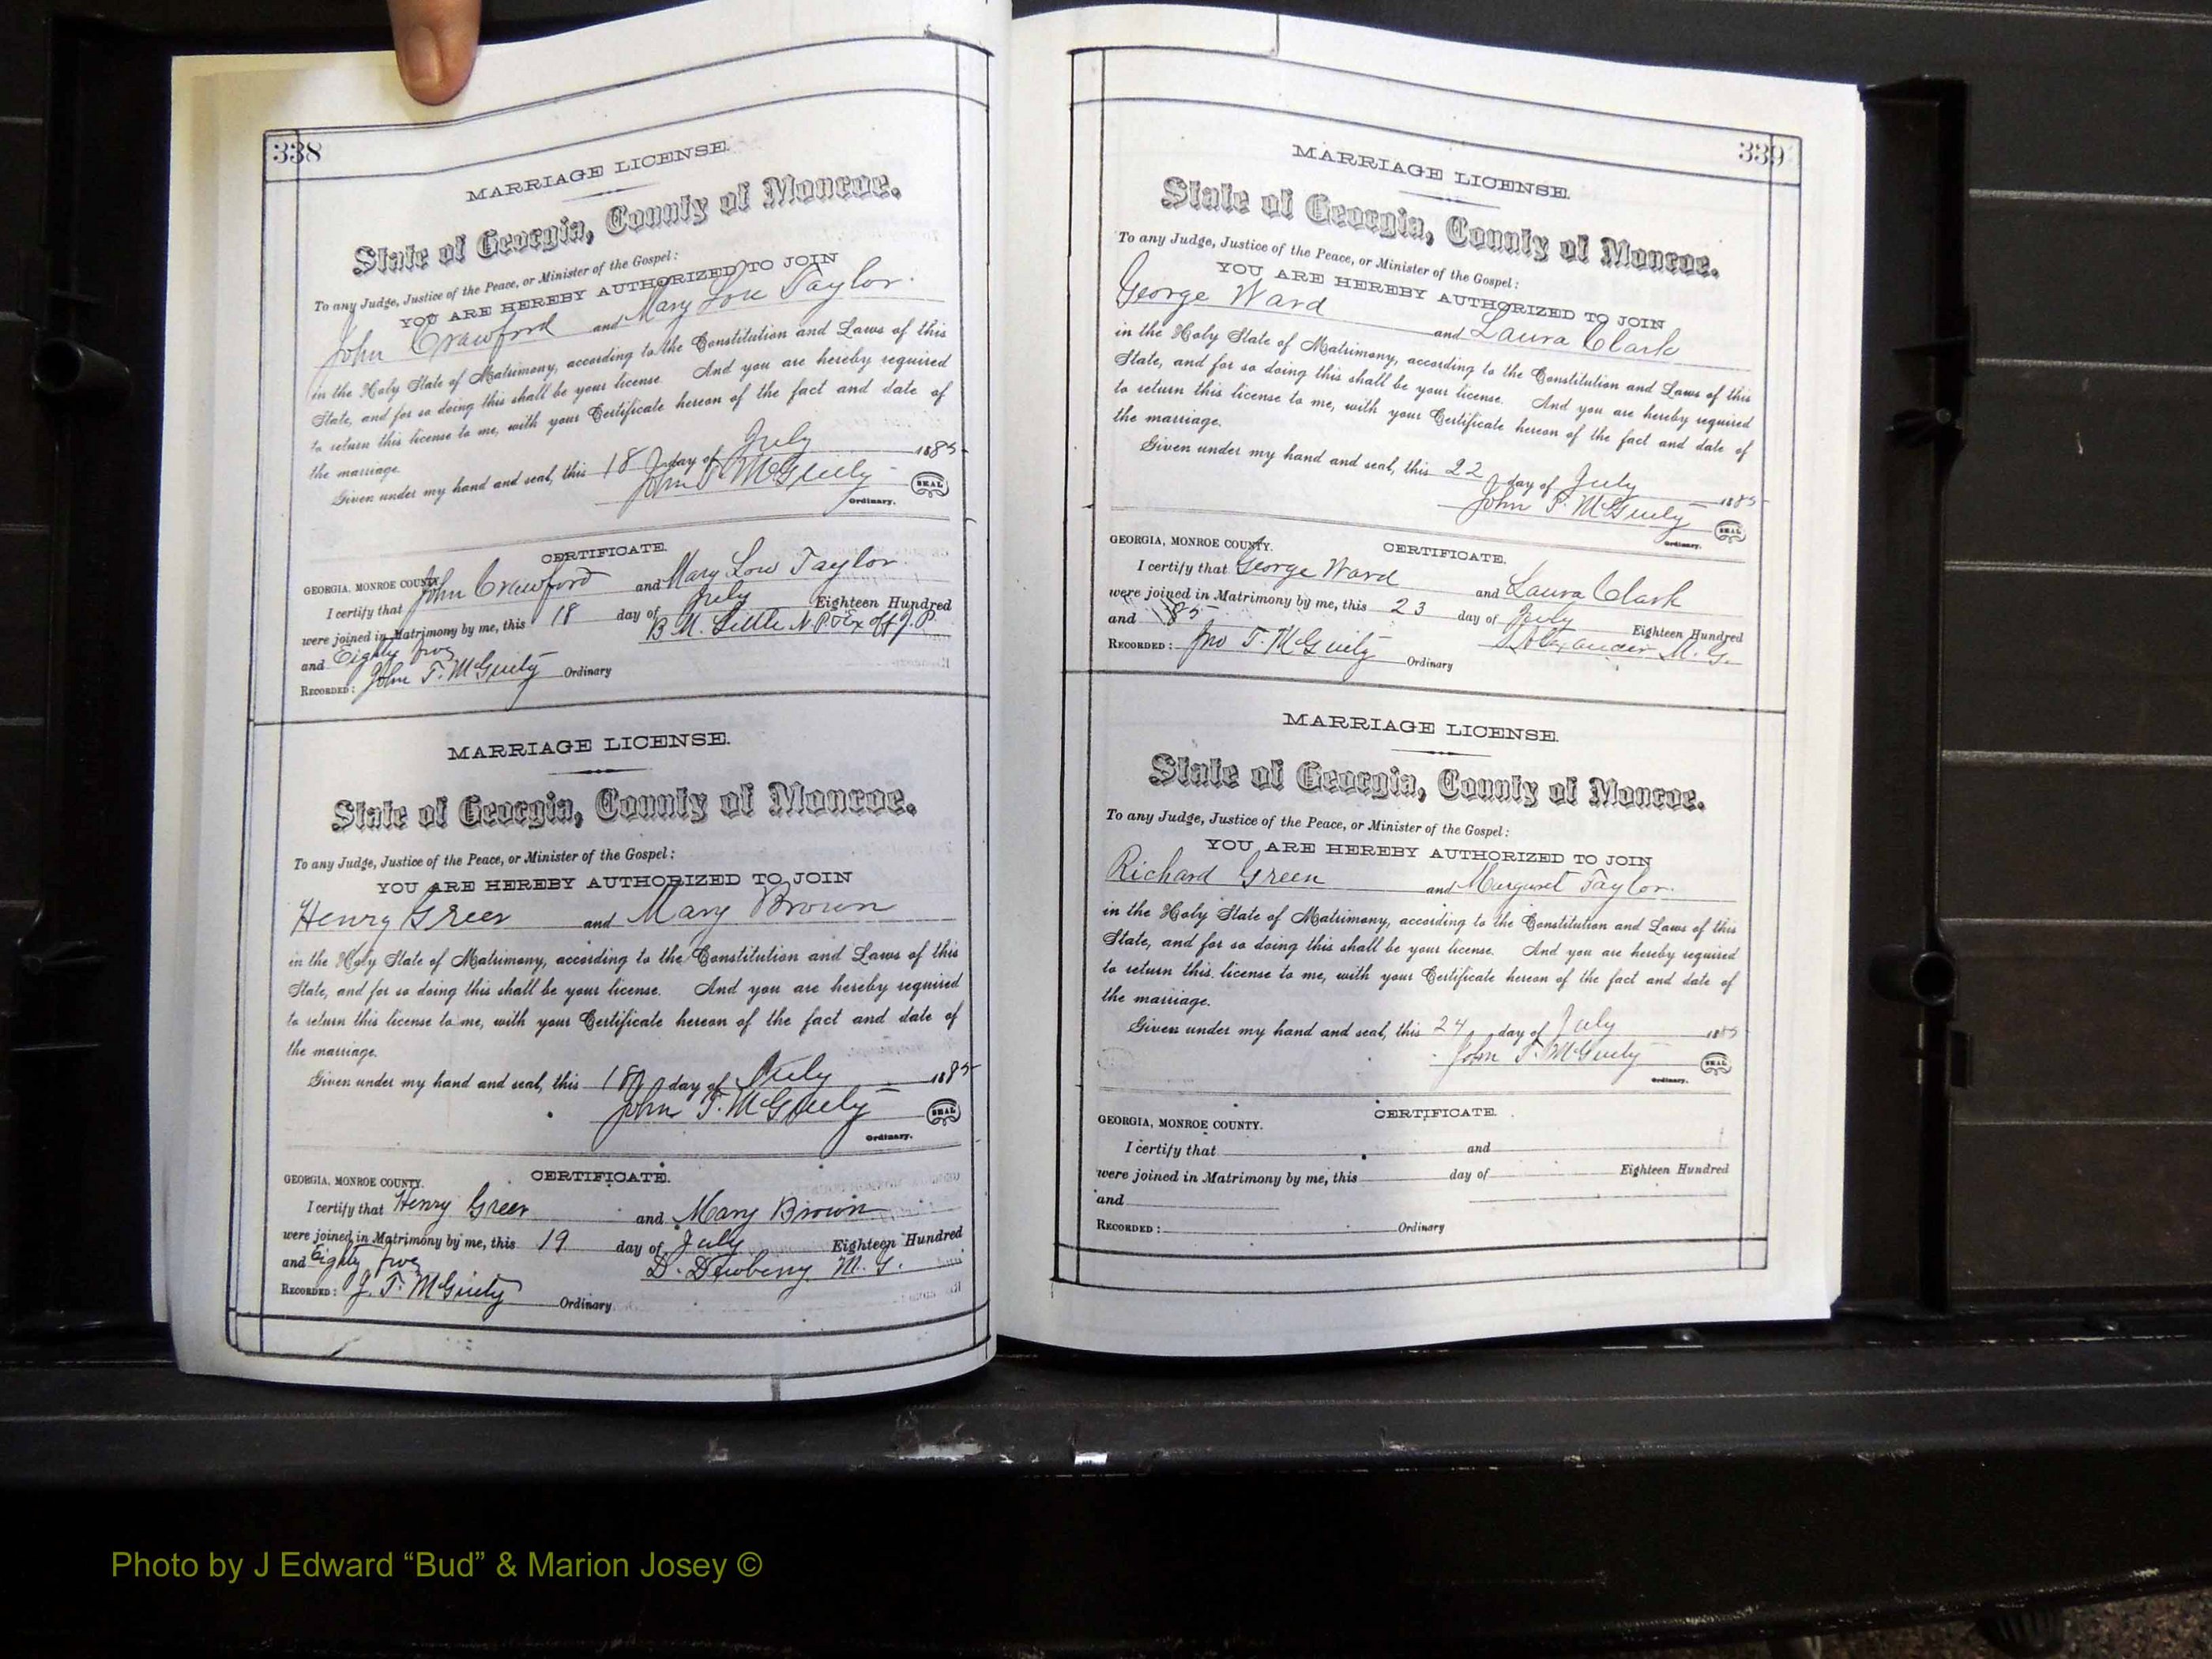 338
MARRIAGE LICENSE.
State of Georgia, County of Monroe.
To any Judge, Justice of the Peace, or Minister of the Gospel:
YOU ARE HEREBY AUTHORIZED TO JOIN
John Crawford and Mary Lou Taylor
in the Holy State of Matrimony, according to the Constitution and Laws of this
State, and for so doing this shall be your license. And you are hereby required
to return this license to me, with your Certificate hereon of the fact and date of
the marriage.
Given under my hand and seal, this 18 day of July 1885
John T. McGinty SEAL
Ordinary.
CERTIFICATE.
GEORGIA, MONROE COUNTY.
I certify that John Crawford and Mary Lou Taylor
were joined in Matrimony by me, this 18 day of July Eighteen Hundred
and Eighty five B. M. Little N.P. & Ex off J.P.
RECORDED: John T. McGinty Ordinary
MARRIAGE LICENSE.
State of Georgia, County of Monroe.
To any Judge, Justice of the Peace, or Minister of the Gospel:
YOU ARE HEREBY AUTHORIZED TO JOIN
Henry Greer and Mary Brown
in the Holy State of Matrimony, according to the Constitution and Laws of this
State, and for so doing this shall be your license. And you are hereby required
to return this license to me, with your Certificate hereon of the fact and date of
the marriage.
Given under my hand and seal, this 18 day of July 1885
John T. McGinty SEAL
Ordinary.
CERTIFICATE.
GEORGIA, MONROE COUNTY.
I certify that Henry Greer and Mary Brown
were joined in Matrimony by me, this 19 day of July Eighteen Hundred
and Eighty five D. Dewberry M. G.
RECORDED: J. T. McGinty Ordinary
339
MARRIAGE LICENSE.
State of Georgia, County of Monroe.
To any Judge, Justice of the Peace, or Minister of the Gospel:
YOU ARE HEREBY AUTHORIZED TO JOIN
George Ward and Laura Clark
in the Holy State of Matrimony, according to the Constitution and Laws of this
State, and for so doing this shall be your license. And you are hereby required
to return this license to me, with your Certificate hereon of the fact and date of
the marriage.
Given under my hand and seal, this 22 day of July 1885
John T. McGinty SEAL
Ordinary.
CERTIFICATE.
GEORGIA, MONROE COUNTY.
I certify that George Ward and Laura Clark
were joined in Matrimony by me, this 23 day of July Eighteen Hundred
and 85 Alexander M. G.
RECORDED: Jno T. McGinty Ordinary
MARRIAGE LICENSE.
State of Georgia, County of Monroe.
To any Judge, Justice of the Peace, or Minister of the Gospel:
YOU ARE HEREBY AUTHORIZED TO JOIN
Richard Green and Margaret Taylor
in the Holy State of Matrimony, according to the Constitution and Laws of this
State, and for so doing this shall be your license. And you are hereby required
to return this license to me, with your Certificate hereon of the fact and date of
the marriage.
Given under my hand and seal, this 24 day of July 1885
John T. McGinty SEAL
Ordinary.
CERTIFICATE.
GEORGIA, MONROE COUNTY.
I certify that and
were joined in Matrimony by me, this day of Eighteen Hundred
and
RECORDED: Ordinary
Photo by J Edward “Bud” & Marion Josey ©